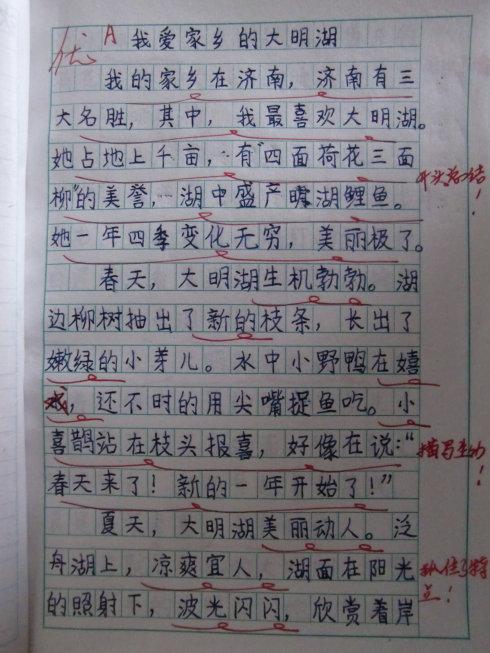 优 A 我爱家乡的大明湖
我的家乡在济南，济南有三
大名胜，其中，我最喜欢大明湖。
她占地上千亩，有“四面荷花三面
柳”的美誉，湖中盛产 湖鲤鱼。
开头总结！
她一年四季变化无穷，美丽极了。
春天，大明湖生机勃勃。湖
边柳树抽出了新的枝条，长出了
嫩绿的小芽儿。水中小野鸭在嬉
戏，还不时的用尖嘴捉鱼吃。小
喜鹊站在枝头报喜，好像在说：“
描写生动！
春天来了！新的一年开始了！”
夏天，大明湖美丽动人。泛
舟湖上，凉爽宜人，湖面在阳光
的照射下，波光闪闪，欣赏着岸